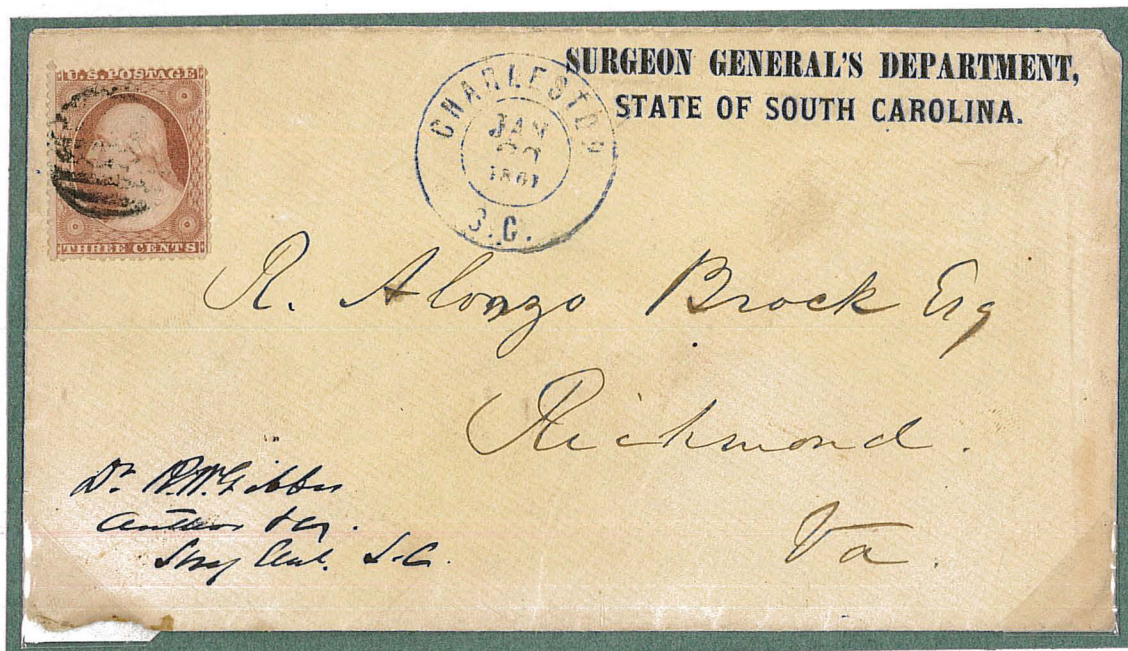 U.S. POSTAGE
THREE CENTS
CHARLESTON
JAN
1861
S.C.
SURGEON GENERAL'S DEPARTMENT,
STATE OF SOUTH CAROLINA.
R. Alonzo Brock Esq
Richmond.
Va.
Dr R.W. Gibbes
Author &c.
Surg Genl. S.C.